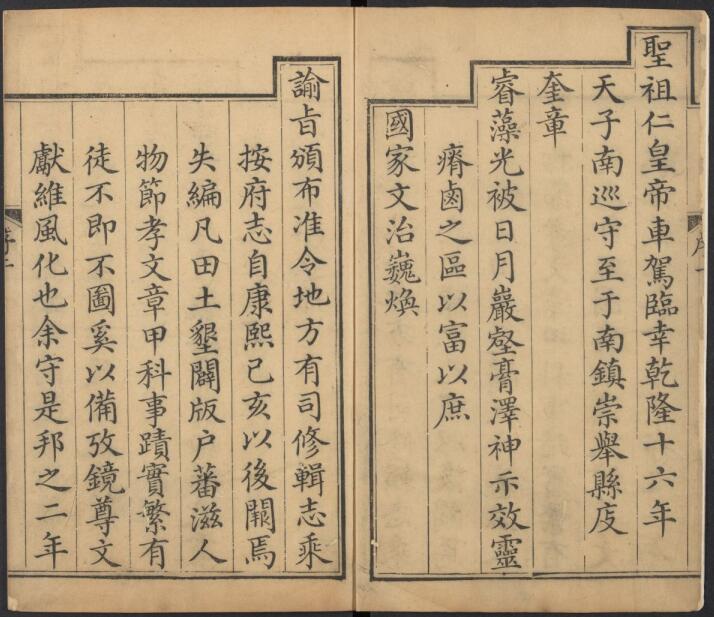 聖祖仁皇帝車駕臨幸乾隆十六年
天子南巡守至于南鎮崇舉縣庋
奎章
睿藻光被日月巖壑膏澤神示效靈
瘠鹵之區以富以庶
國家文治巍煥
諭旨頒布准令地方有司修輯志乘
按府志自康熙己亥以後闕焉
失編凡田土墾闢版户蕃滋人
物節孝文章甲科事蹟實繁有
徒不即不圖奚以備攷鏡尊文
獻維風化也余守是邦之二年